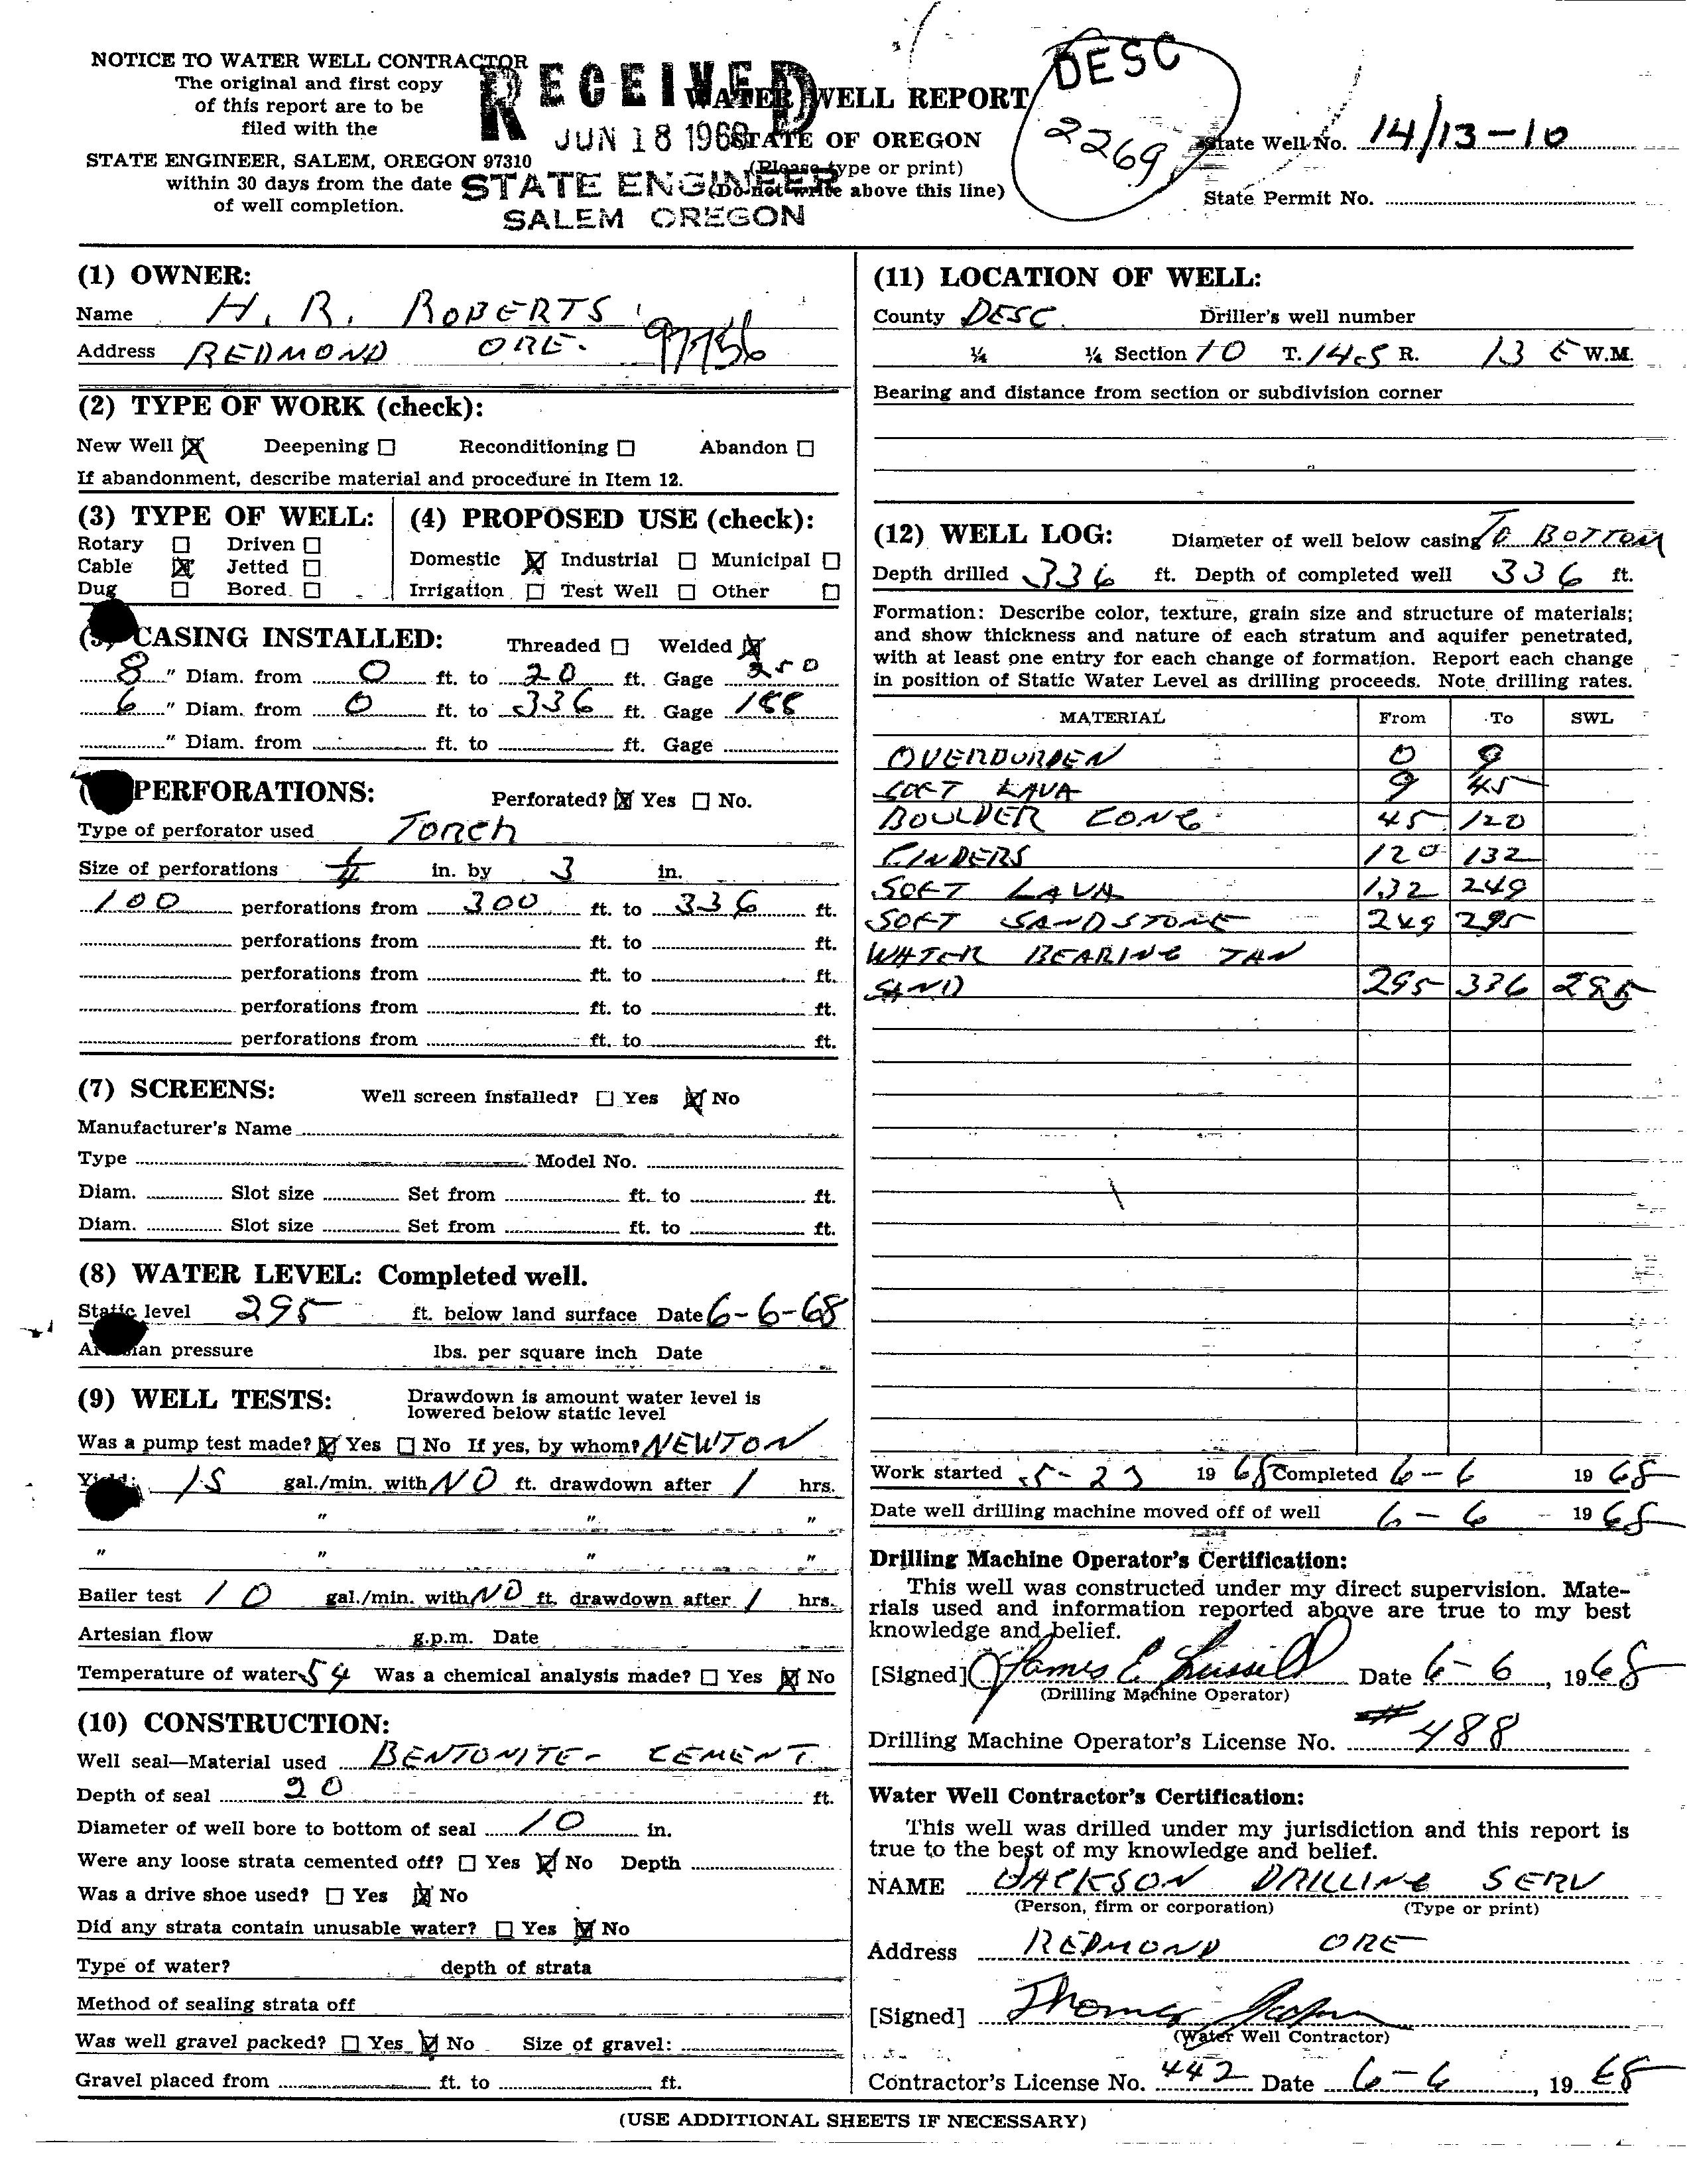 NOTICE TO WATER WELL CONTRACTOR
The original and first copy
of this report are to be
filed with the
STATE ENGINEER, SALEM, OREGON 97310
within 30 days from the date
of well completion.
RECEIVED
JUN 18 1968
STATE ENGINEER
SALEM OREGON
WATER WELL REPORT
STATE OF OREGON
(Please type or print)
(Do not write above this line)
DESC
2269
State Well No. 14/13-10
State Permit No.
(1) OWNER:
Name H. R. ROBERTS
Address REDMOND ORE. 97756
(2) TYPE OF WORK (check):
New Well ☒ Deepening ☐ Reconditioning ☐ Abandon ☐
If abandonment, describe material and procedure in Item 12.
(3) TYPE OF WELL:
Rotary ☐ Driven ☐
Cable ☒ Jetted ☐
Dug ☐ Bored ☐
(4) PROPOSED USE (check):
Domestic ☒ Industrial ☐ Municipal ☐
Irrigation ☐ Test Well ☐ Other ☐
CASING INSTALLED: Threaded ☐ Welded ☒
8 " Diam. from 0 ft. to 20 ft. Gage 250
6 " Diam. from 0 ft. to 336 ft. Gage 188
" Diam. from ft. to ft. Gage
PERFORATIONS: Perforated? ☒ Yes ☐ No.
Type of perforator used TORCH
Size of perforations in. by 3 in.
100 perforations from 300 ft. to 336 ft.
perforations from ft. to ft.
perforations from ft. to ft.
perforations from ft. to ft.
perforations from ft. to ft.
(7) SCREENS: Well screen installed? ☐ Yes ☒ No
Manufacturer's Name
Type Model No.
Diam. Slot size Set from ft. to ft.
Diam. Slot size Set from ft. to ft.
(8) WATER LEVEL: Completed well.
Static level 295 ft. below land surface Date 6-6-68
Artesian pressure lbs. per square inch Date
(9) WELL TESTS: Drawdown is amount water level is
lowered below static level
Was a pump test made? ☒ Yes ☐ No If yes, by whom? NEWTON
Yield: 15 gal./min. with NO ft. drawdown after 1 hrs.
" " "
" " " "
Bailer test 10 gal./min. with NO ft. drawdown after 1 hrs.
Artesian flow g.p.m. Date
Temperature of water 54 Was a chemical analysis made? ☐ Yes ☒ No
(10) CONSTRUCTION:
Well seal—Material used BENTONITE- CEMENT
Depth of seal 20 ft.
Diameter of well bore to bottom of seal 10 in.
Were any loose strata cemented off? ☐ Yes ☒ No Depth
Was a drive shoe used? ☐ Yes ☒ No
Did any strata contain unusable water? ☐ Yes ☒ No
Type of water? depth of strata
Method of sealing strata off
Was well gravel packed? ☐ Yes ☒ No Size of gravel:
Gravel placed from ft. to ft.
(11) LOCATION OF WELL:
County DESC. Driller's well number
¼ ¼ Section 10 T. 14S R. 13 E W.M.
Bearing and distance from section or subdivision corner
(12) WELL LOG: Diameter of well below casing TO BOTTOM
Depth drilled 336 ft. Depth of completed well 336 ft.
Formation: Describe color, texture, grain size and structure of materials;
and show thickness and nature of each stratum and aquifer penetrated,
with at least one entry for each change of formation. Report each change
in position of Static Water Level as drilling proceeds. Note drilling rates.
MATERIAL From To SWL
OVERBURDEN 0 9
SOFT LAVA 9 45
BOULDER CONG 45 120
CINDERS 120 132
SOFT LAVA 132 249
SOFT SANDSTONE 249 295
WATER BEARING TAN
SAND 295 336 295
Work started 5-23 1968 Completed 6-6 1968
Date well drilling machine moved off of well 6-6 1968
Drilling Machine Operator's Certification:
This well was constructed under my direct supervision. Mate-
rials used and information reported above are true to my best
knowledge and belief.
[Signed] James E Russell Date 6-6, 1968
(Drilling Machine Operator)
Drilling Machine Operator's License No. #488
Water Well Contractor's Certification:
This well was drilled under my jurisdiction and this report is
true to the best of my knowledge and belief.
NAME JACKSON DRILLING SERV
(Person, firm or corporation) (Type or print)
Address REDMOND ORE
[Signed] Thomas
(Water Well Contractor)
Contractor's License No. 442 Date 6-6, 1968
(USE ADDITIONAL SHEETS IF NECESSARY)